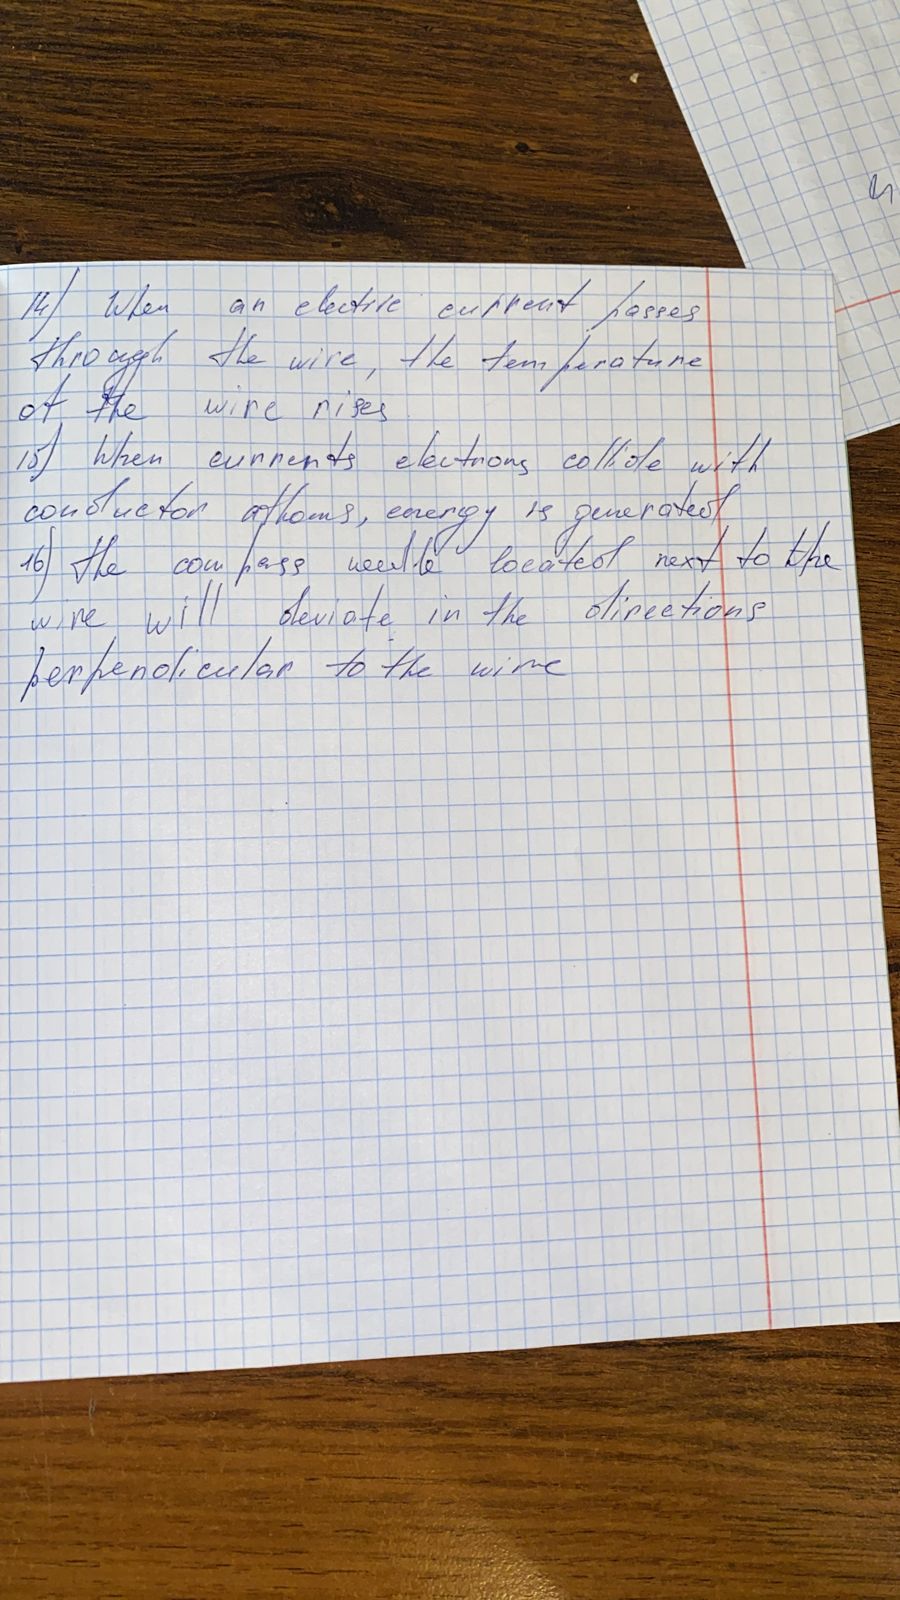 14) When an electric current passes
through the wire, the temperature
of the wire rises.
15) When currents electrons collide with
conductor athoms, energy is generated
16) The compass needle located next to the
wire will deviate in the directions
perpendicular to the wire